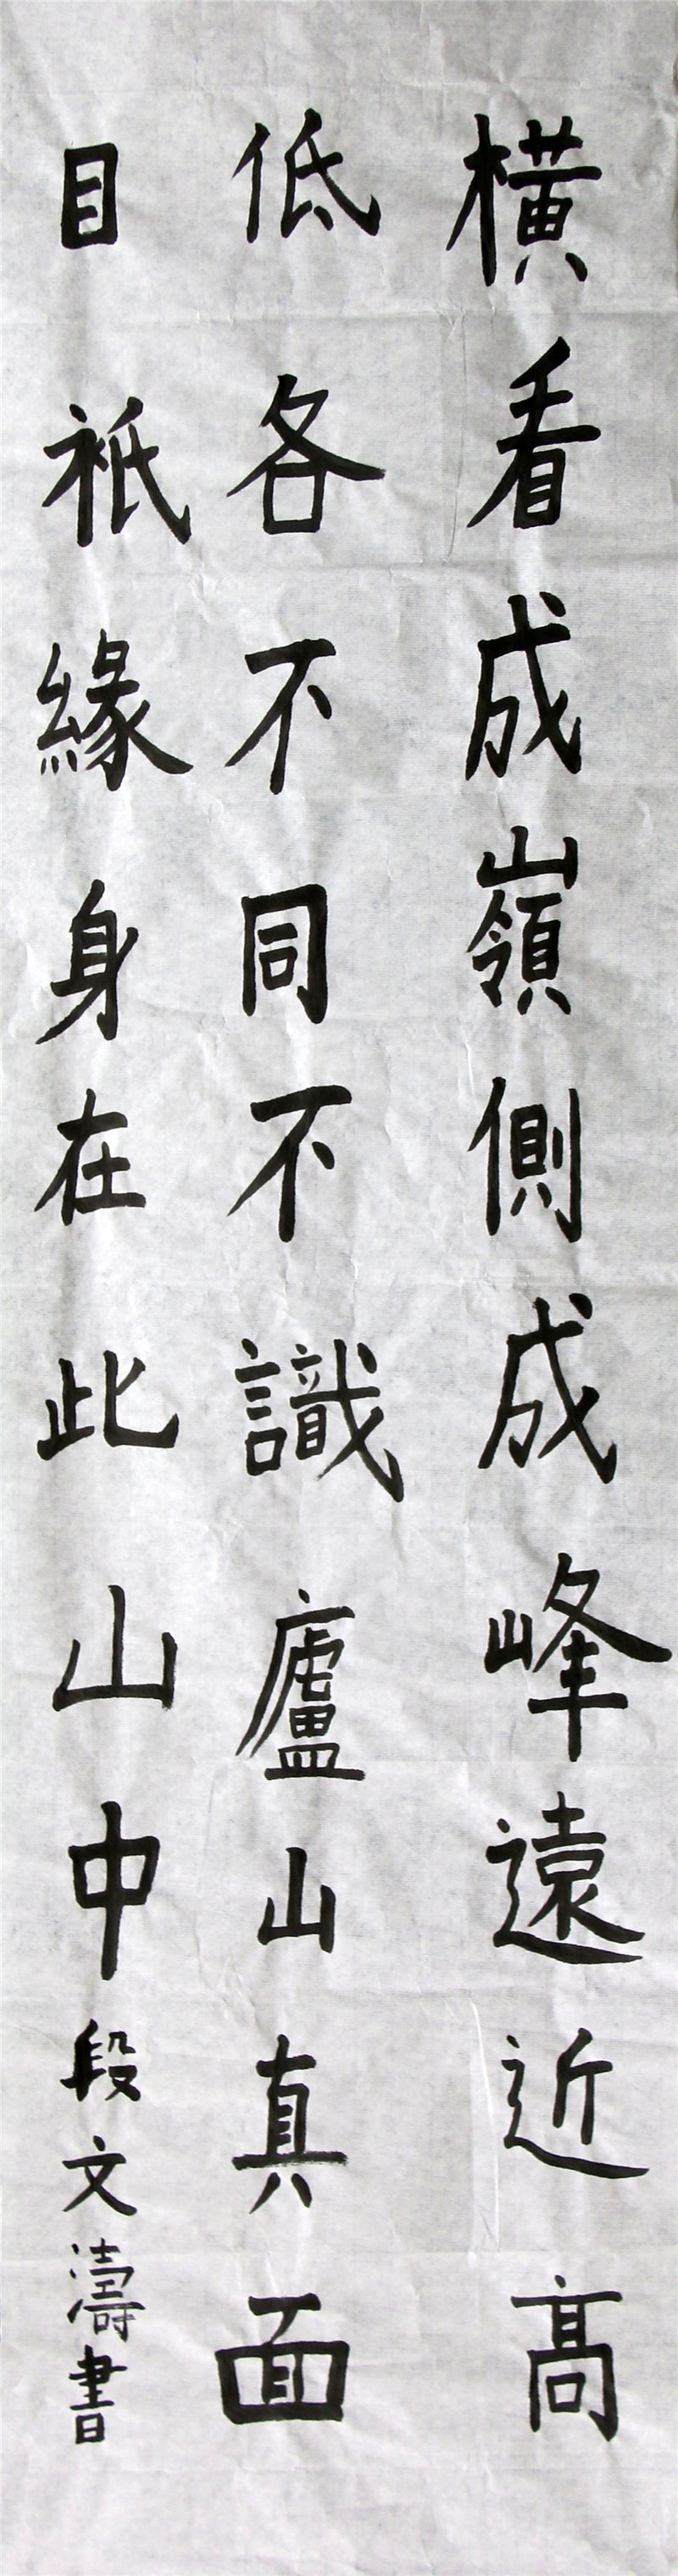 橫看成嶺側成峰遠近高
低各不同不識廬山真面
目祇緣身在此山中段文濤書